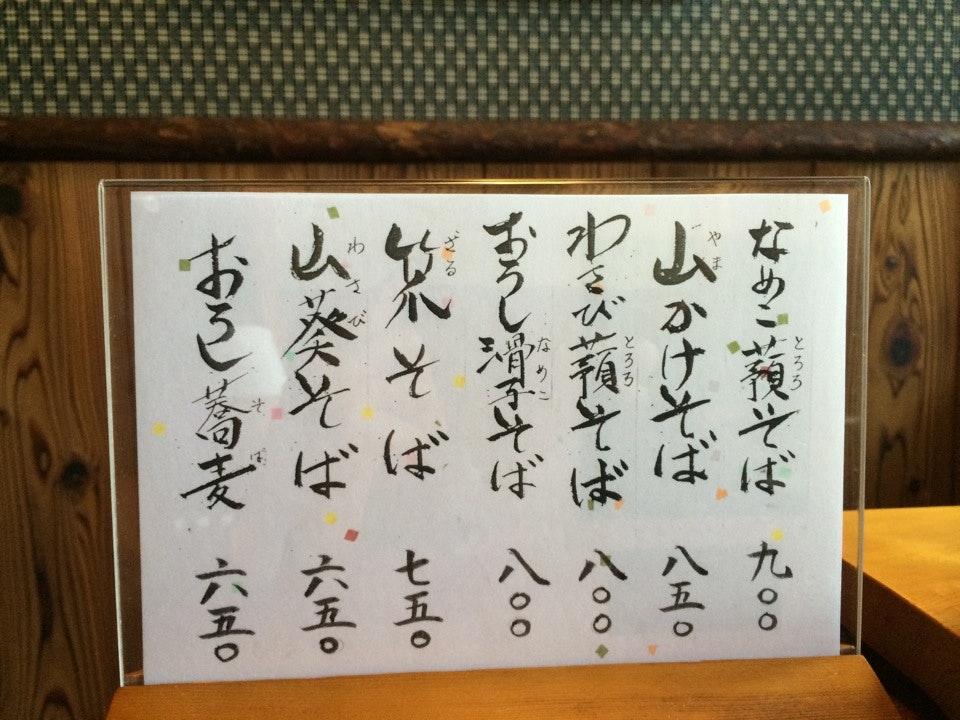 なめこ蕷そば 九〇〇
とろろ
山かけそば 八五〇
やま
わさび蕷そば 八〇〇
とろろ
おろし滑子そば 八〇〇
なめこ
笊そば 七五〇
ざる
山葵そば 六五〇
わさび
おろし蕎麦 六五〇
そば